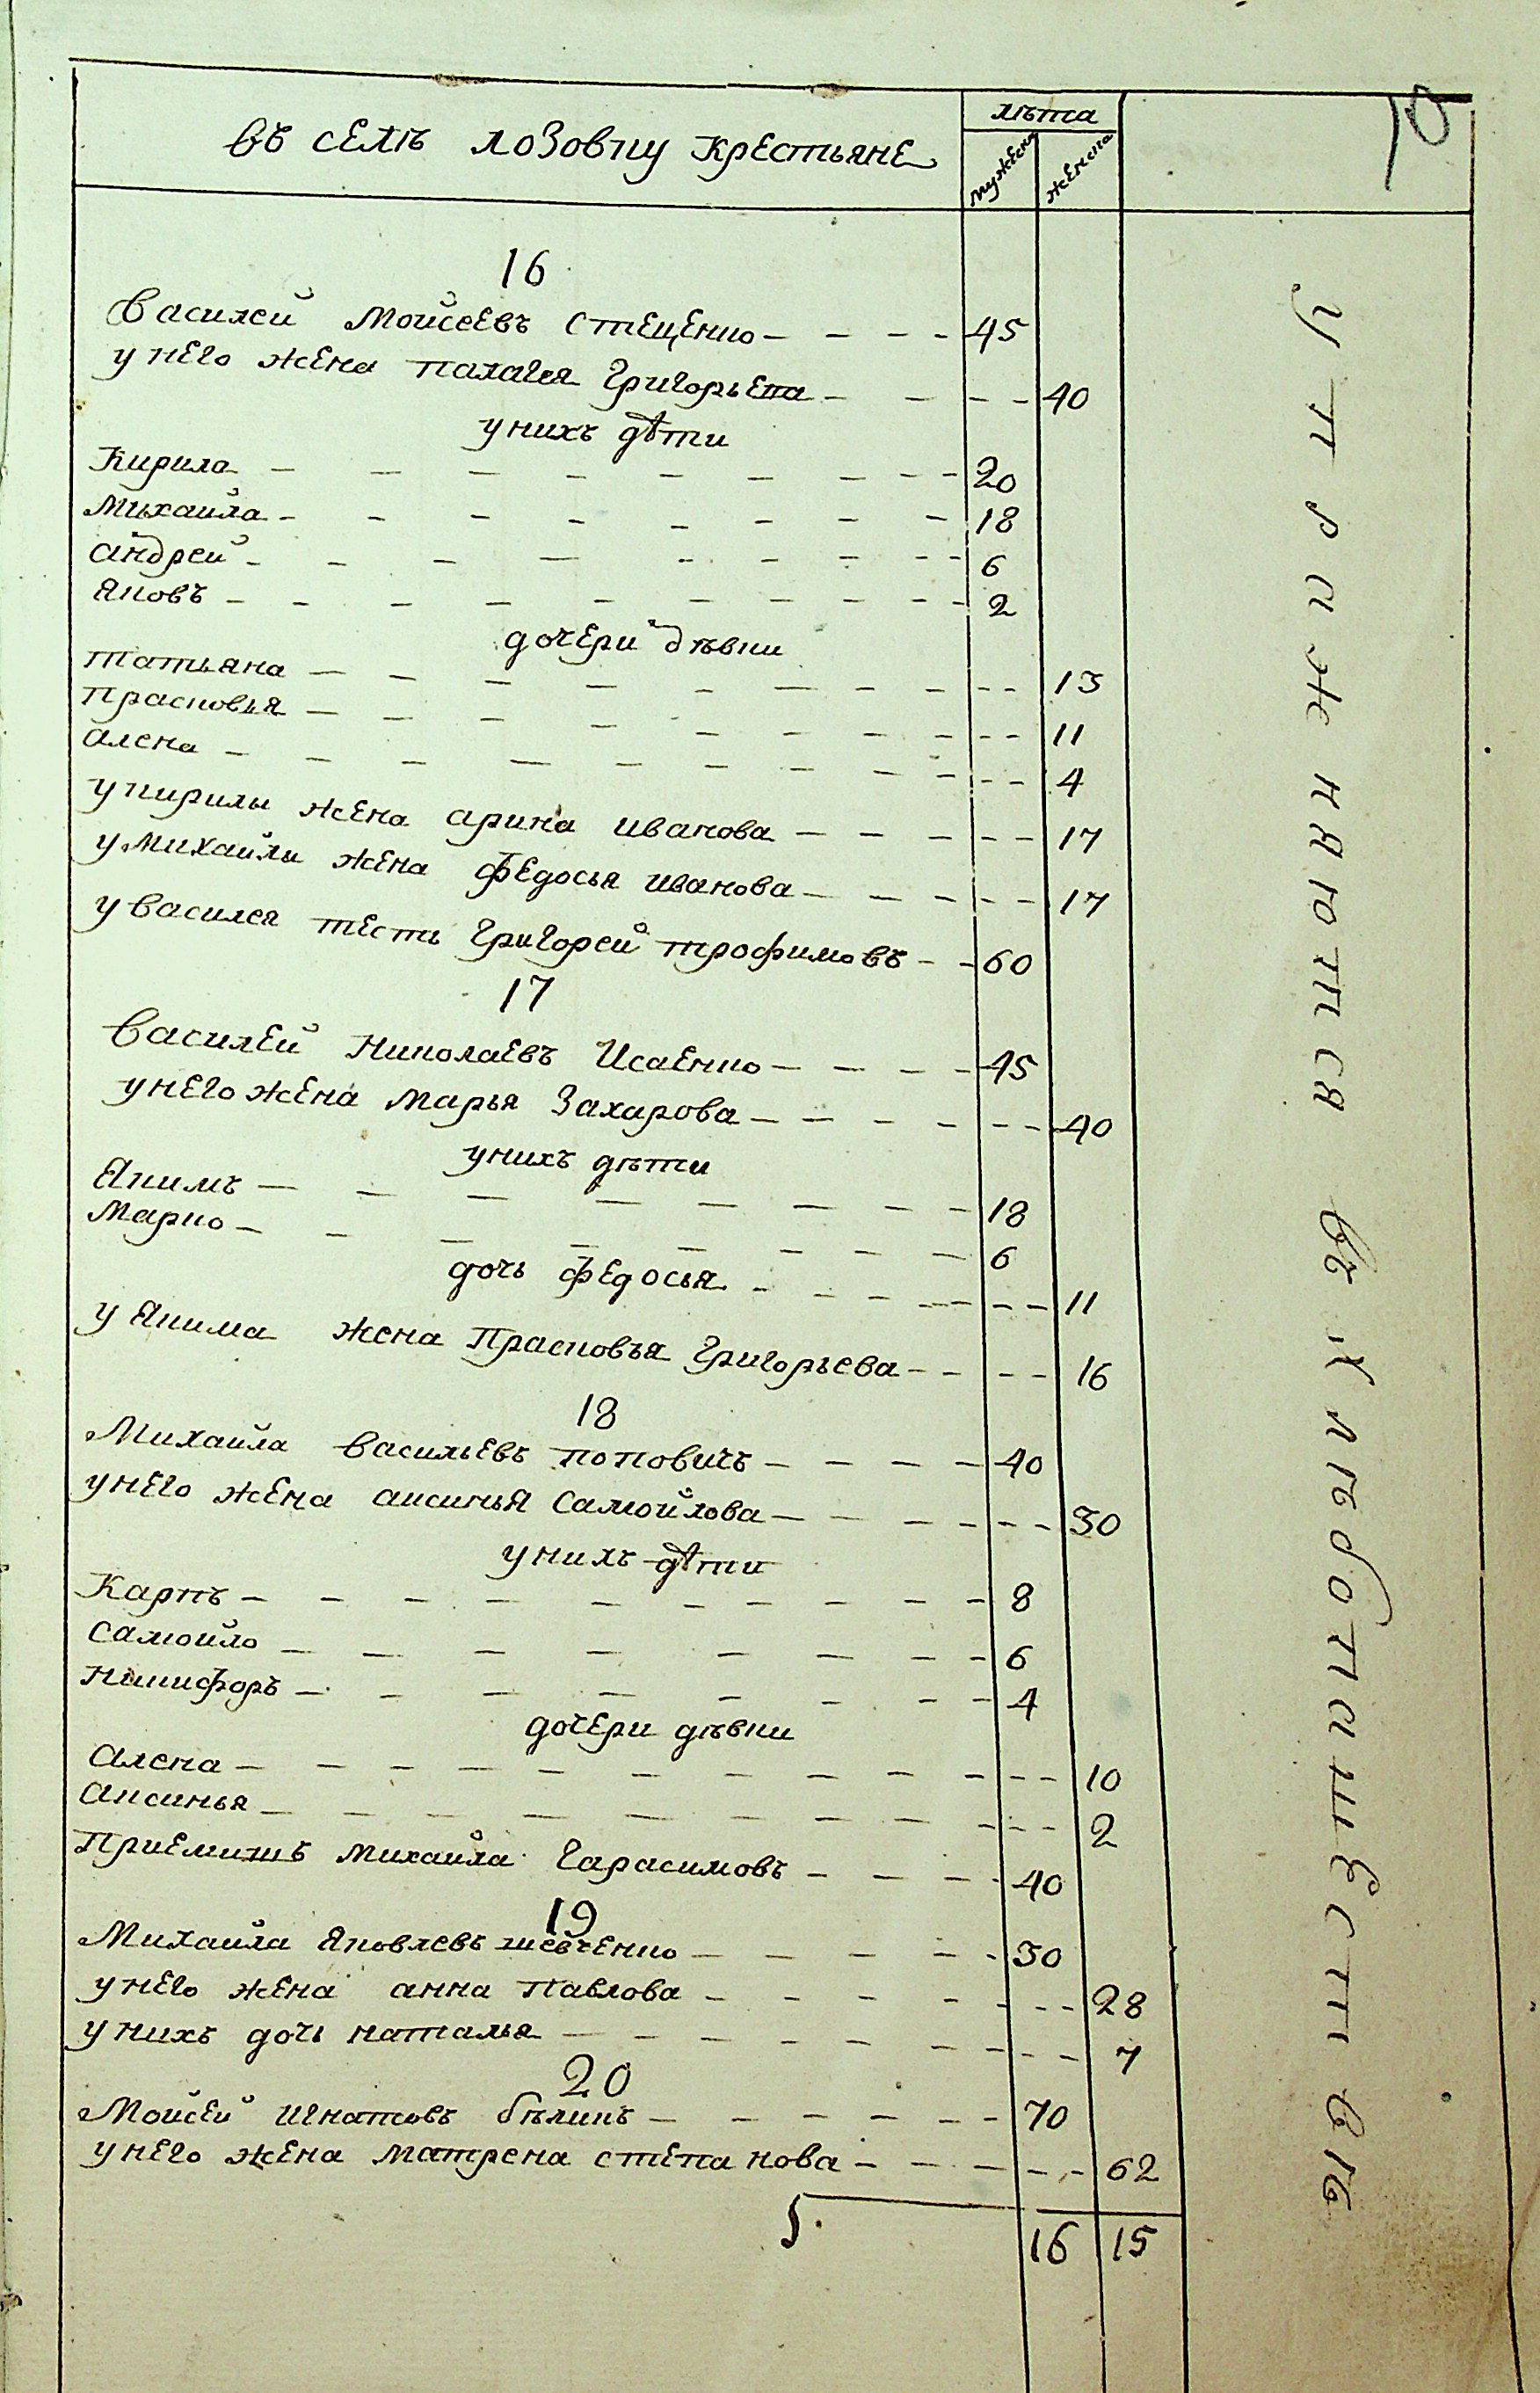 въ селѣ лозовку крестьяне
лѣта
мужеска
женска
70
16
Василей Мойсеевъ Стеценко 45
у него жена палагея Григорьева 40
у нихъ дѣти
Кирила 20
Михайла 18
андрей 6
яковъ 2
дочери дѣвки
татьяна 13
Прасковья 11
алена 4
у кирилы жена арина иванова 17
у михайлы жена федосья иванова 17
у василея тесть Григорей трофимовъ 60
17
Василей Николаевъ Исаенко 45
у него жена марья Захарова 40
у нихъ дѣти
Якимъ 18
Марко 6
дочь федосья 11
у Якима жена Прасковья Григорьева 16
18
Михайла васильевъ поповичъ 40
у него жена аксинья Самойлова 30
у нихъ дѣти
Карпъ 8
самойло 6
Никифоръ 4
дочери дѣвки
алена 10
аксинья 2
Приемышъ михайла Гарасимовъ 40
19
Михайла яковлевъ шевченко 30
у него жена анна Павлова 28
у нихъ дочь наталья 7
20
Мойсей игнатовъ бѣликъ 70
у него жена матрена степанова 62
16 15
Упражняются въ хлебопашествѣ